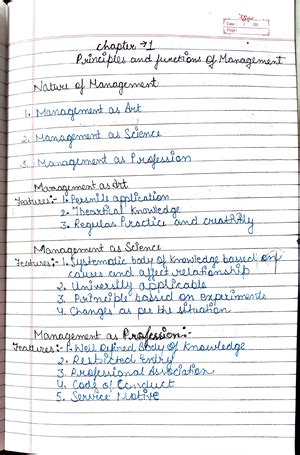 Date
Page
chapter → 1
Principles and functions of Management
Nature of Management
1. Management as Art
2. Management as Science
3. Management as Profession
Management as Art
Features:- 1. Persnile application
2. Theartical Knowledge
3. Regular Practice and creativity
Management as Science
Features:- 1. Systematic body of Knowledge based on
causes and affect relationship
2. University applicable
3. Principle based on experiments
4. Changes as per the situation
Management as Profession:-
Features:- 1. Well Defined Body Of Knowledge
2. Restricted Entry
3. Professional Association
4. Code of Conduct
5. Service Motive